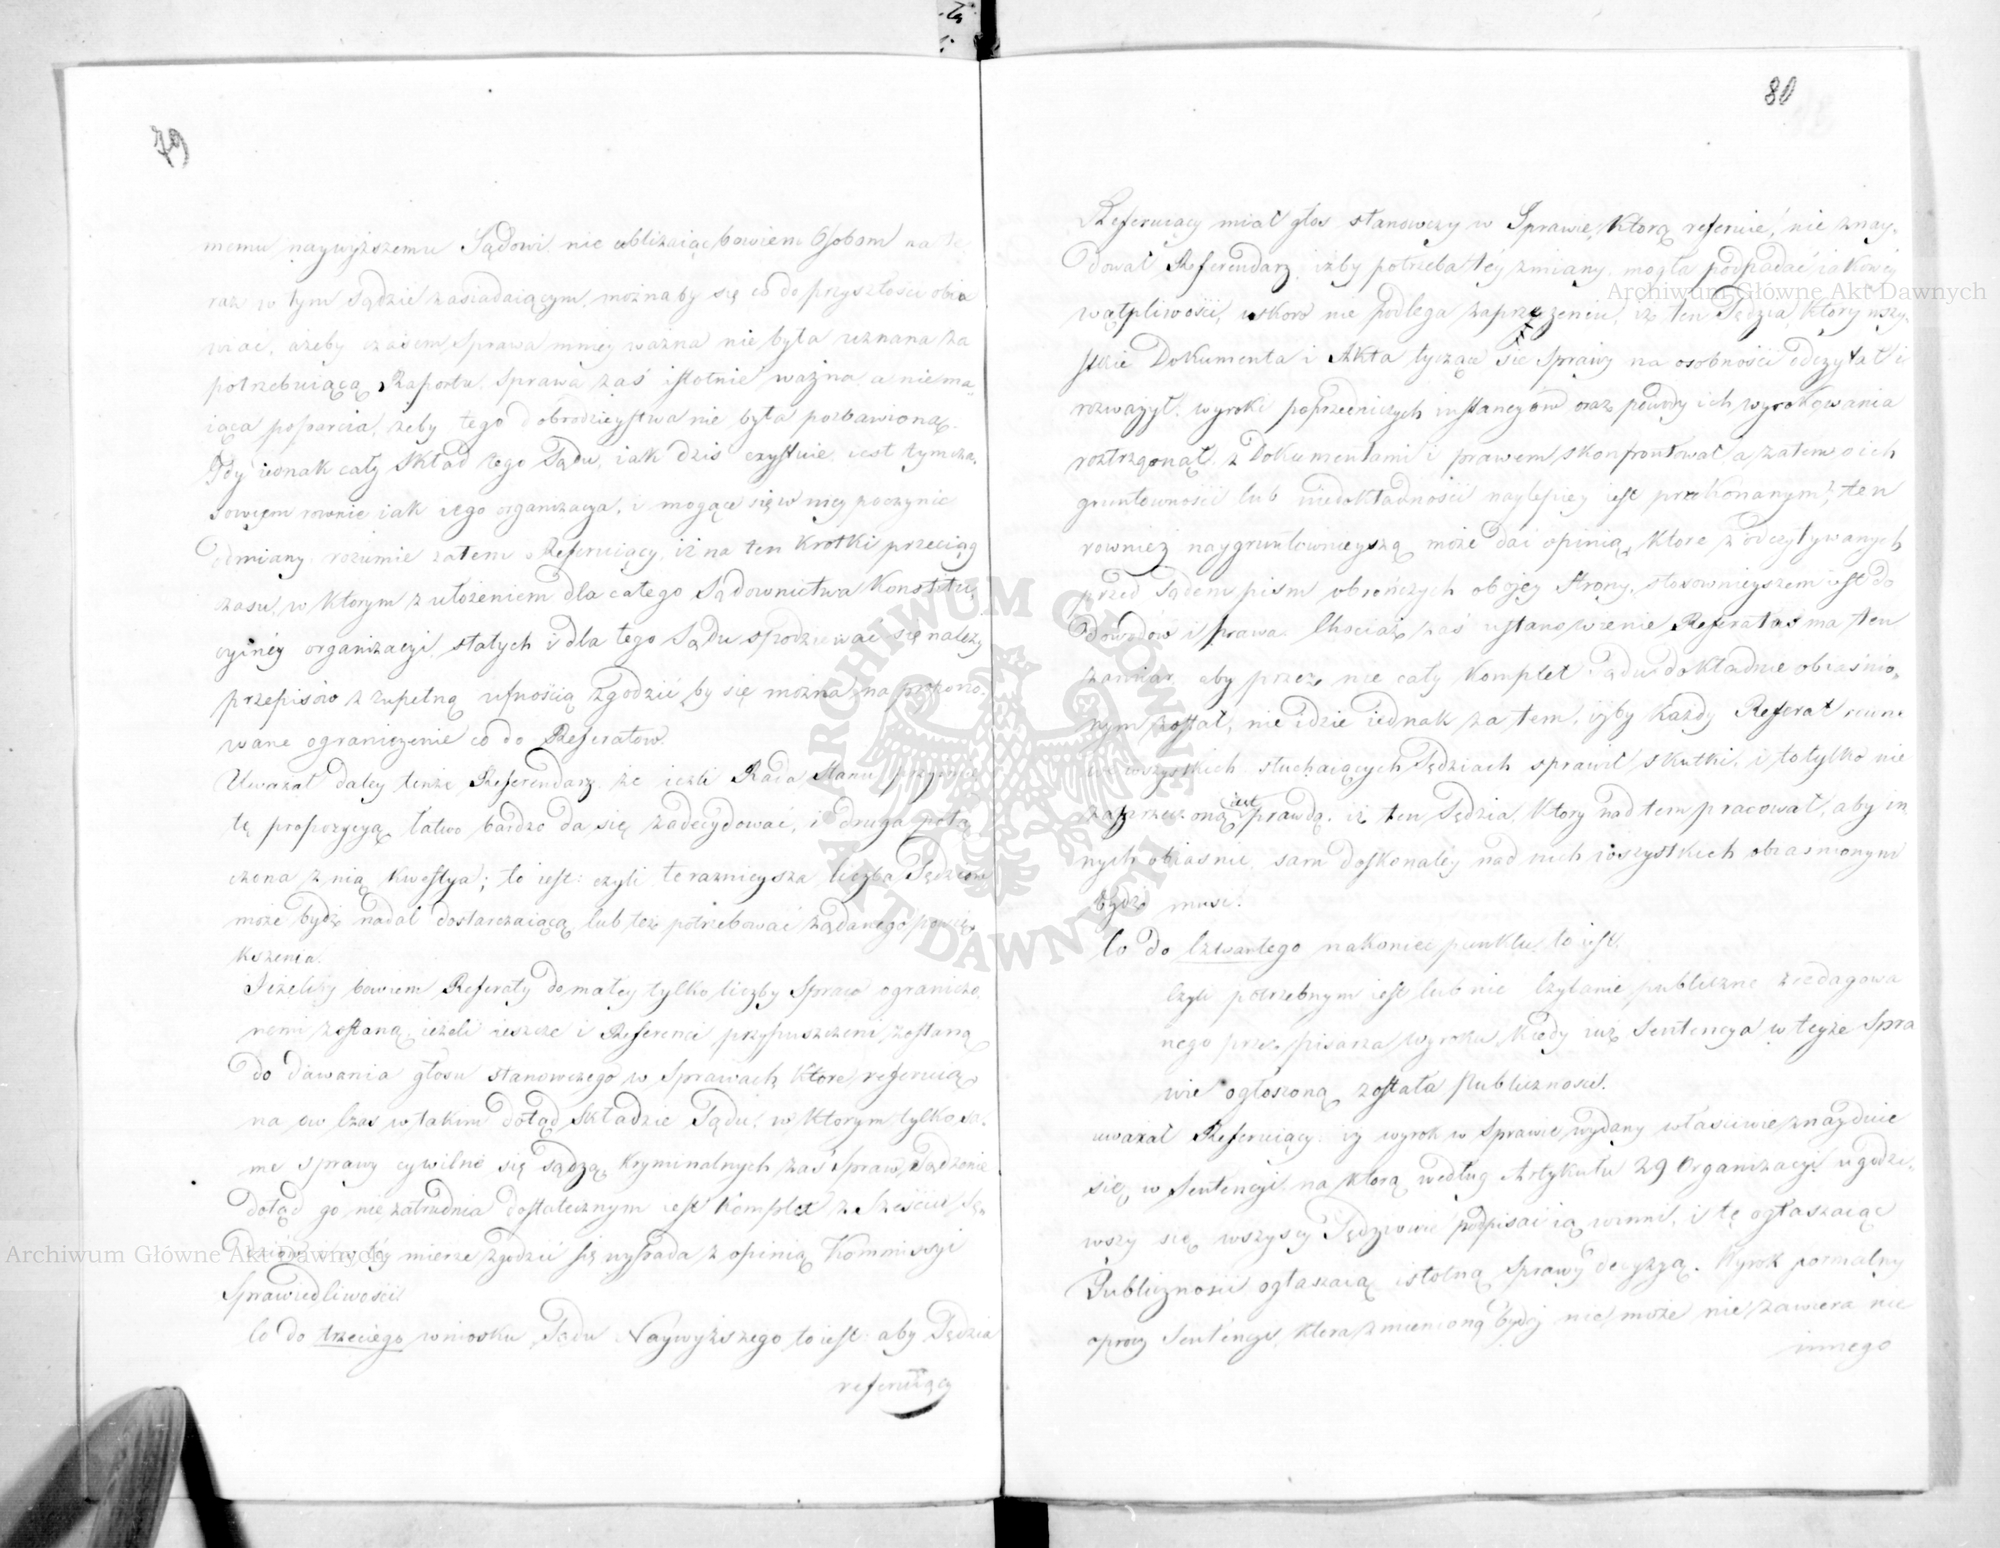 79
memu naywyższemu Sądowi nie ubliżaiąc bowiem Osobom na te
raz w tym Sądzie zasiadaiącym, możnaby się co do przyszłości oba
wiać, ażeby czasem Sprawa mniey ważna nie była uznana za
potrzebuiącą Raportu, Sprawa zaś istotnie ważna, a niema
iąca poparcia, żeby tego dobrodzieystwa nie była pozbawioną.
Gdy iednak cały Skład tego Sądu, iak dziś exystuie, iest tymcza,
sowym rownie iak iego organizacya, i mogące się w niey poczynić
odmiany, rozumie zatem Referuiący, iż na ten krotki przeciąg
czasu, w ktorym z ułożeniem dla całego Sądownictwa Konstytu
cyiney organizacyi, stałych i dla tego Sądu spodziewać się należy
przepisów z zupełną ufnością zgodzić by się można na propono,
wane ograniczenie co do Referatow.
Uważał daley tenże Referendarz, że ieżli Rada Stanu przyimie
tę propozycyą, łatwo bardzo da się zadecydować, i druga połą
czona z nią kwestya; to iest: czyli teraznieysza liczba Sędziow
może bydź nadal dostarczaiącą, lub też potrzebować żądanego powię
kszenia.
Jeżeliby bowiem Referaty do małey tylko liczby Spraw ograniczo,
nemi zostaną, ieżeli ieszcze i Referenci przypuszczeni zostaną
do dawania głosu stanowczego w Sprawach, ktore referuią,
na ow czas w takim dotąd Składzie Sądu, w ktorym tylko sa,
me sprawy cywilne się sądzą, kryminalnych zaś Spraw Sądzenie
dotąd go nie zatrudnia dostatecznym iest Komplet z Sześciu Sę,
dziów i w tey mierze zgodzić się wypada z opinią Kommissyi
Sprawiedliwości.
Co do trzeciego wniosku Sądu Naywyższego to iest: aby Sędzia
referuiący
80
Referuiący miał głos stanowczy w Sprawie, ktorą referuie, nie znay,
dował Referendarz, iżby potrzeba tey zmiany, mogła podpadać iakowey
wątpliwości, skoro nie podlega zaprzeczeniu, iż ten Sędzia, ktory wszy,
stkie Dokumenta i Akta tyczące się Sprawy na osobności odczytał i
rozważył, wyroki poprzedniczych instancyów oraz powody ich wyrokowania
roztrząsnął, z Dokumentami i prawem skonfrontował, a zatem o ich
gruntowności lub niedokładności naylepiey iest przekonanym, ten
rownież naygruntownieyszą może dać opinią, ktore z odczytywanych
przed Sądem pism obrończych oboiey Strony, stosownieyszem iest do
Dowodów i prawa. Chociaż zaś ustanowienie Referatas ma ten
zamiar, aby przez nie cały Komplet Sądu dokładnie obiaśnio,
nym został, nie idzie iednak za tem, iżby każdy Referat rowne
we wszystkich słuchaiących Sędziach sprawił skutki, i to tylko nie
zaprzeczoną iest prawdą, iż ten Sędzia, ktory nad tem pracował, aby in
nych obiasnić, sam doskonaley nad nich wszystkich obiasnionym
bydź musi.
Co do Czwartego nakoniec punktu, to iest.
Czyli potrzebnym iest lub nie Czytanie publiczne zredagowa
nego przez pisarza wyroku, kiedy iuż Sentencya w teyże Spra
wie ogłoszoną została Publiczności.
uważał Referuiący: iż wyrok w Sprawie wydany właściwie znayduie
się w Sentencyi, na ktorą według Artykułu 29 Organizacyi ugodzi,
wszy się wszyscy Sędziowie podpisać ią winni, i tę ogłaszaiąc
Publiczności ogłaszaią istotną Sprawy decyzyą. Wyrok formalny
oprocz Sentencyi, ktora zmienioną bydź nie może nie zawiera nic
innego
Archiwum Główne Akt Dawnych
Archiwum Główne Akt Dawnych
ARCHIWUM GŁÓWNE AKT DAWNYCH